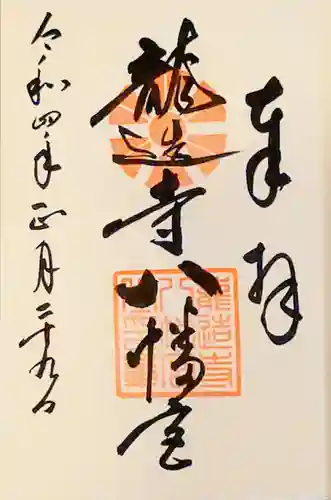 奉拝
龍造寺八幡宮
令和四年正月二十九日
龍造寺八幡宮